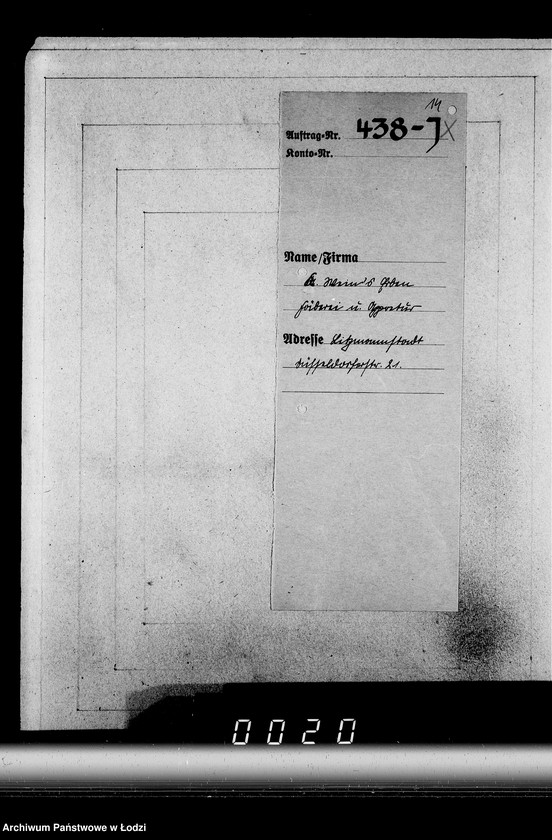 14
Auftrag-Nr. 438-J X
Konto-Nr.
Name/Firma
A. Wein's Erben
Färberei u. Appretur
Adresse Litzmannstadt
Düsseldorferstr. 21.
0020
Archiwum Państwowe w Łodzi